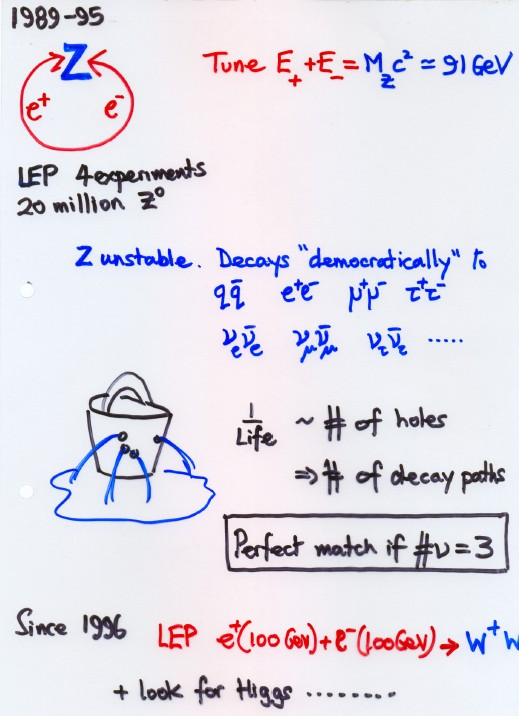 1989-95
Z
e⁺ e⁻
Tune E₊ + E₋ = M_Z c² ≃ 91 GeV
LEP 4 experiments
20 million Z⁰
Z unstable. Decays "democratically" to
qq̄ e⁺e⁻ μ⁺μ⁻ τ⁺τ⁻
ν_e ν̄_e ν_μ ν̄_μ ν_τ ν̄_τ .....
1/Life ~ # of holes
⇒ # of decay paths
Perfect match if #ν = 3
Since 1996 LEP e⁺(100 GeV) + e⁻(100 GeV) → W⁺ W
+ look for Higgs ........